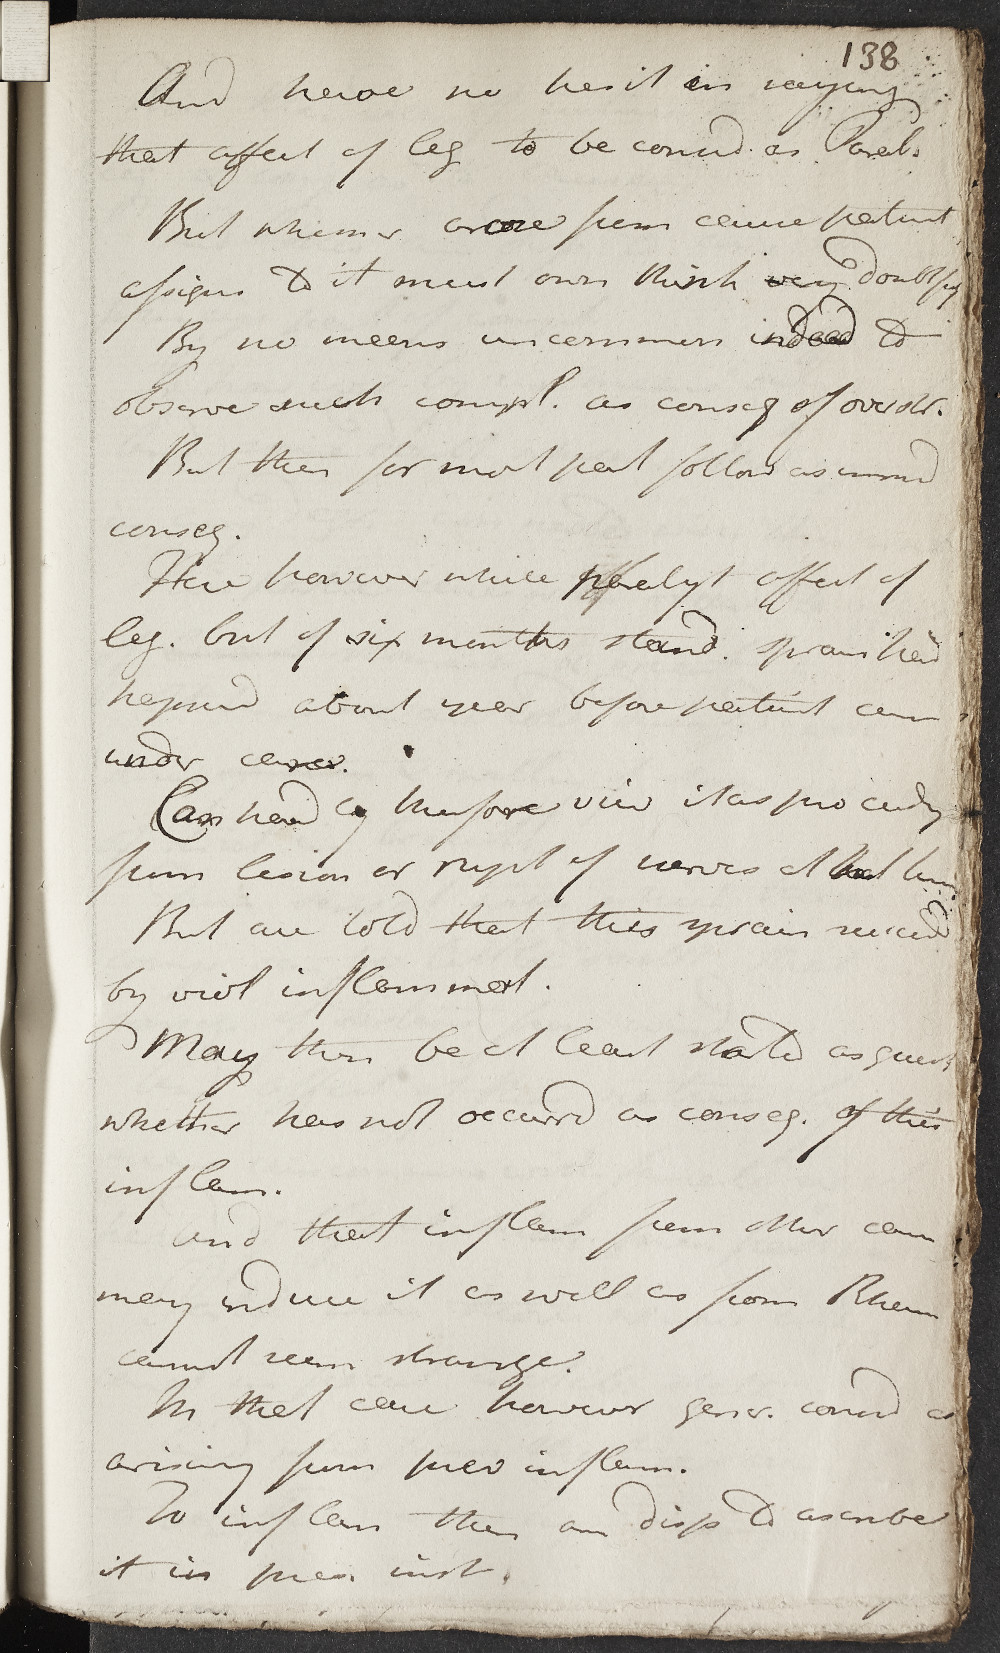 138
And have no hesit in saying
that affect of leg to be consid. as Paral.
But whether arose from cause patient
assigns to it must own think very doubtful
By no means uncommon indeed to
observe such compl. as conseq of overstr.
But then for most part follow as immed
conseq.
Here however while paralyt affect of
leg. but of six months stand. sprain had
happend about year before patient came
under care.
Can hardly therefore view it as proceeding
from lesion or rupt of nerves at that time
But are told that this sprain succeed
by viol inflammat.
May then be at least stated as quest
whether has not occurrd as conseq. of this
inflam.
And that inflam from other cause
may induce it as well as from Rheum
cannot seem strange.
In that case however gener. consid as
arising from prev inflam.
To inflam then am disp to ascribe
it in pres. inst.